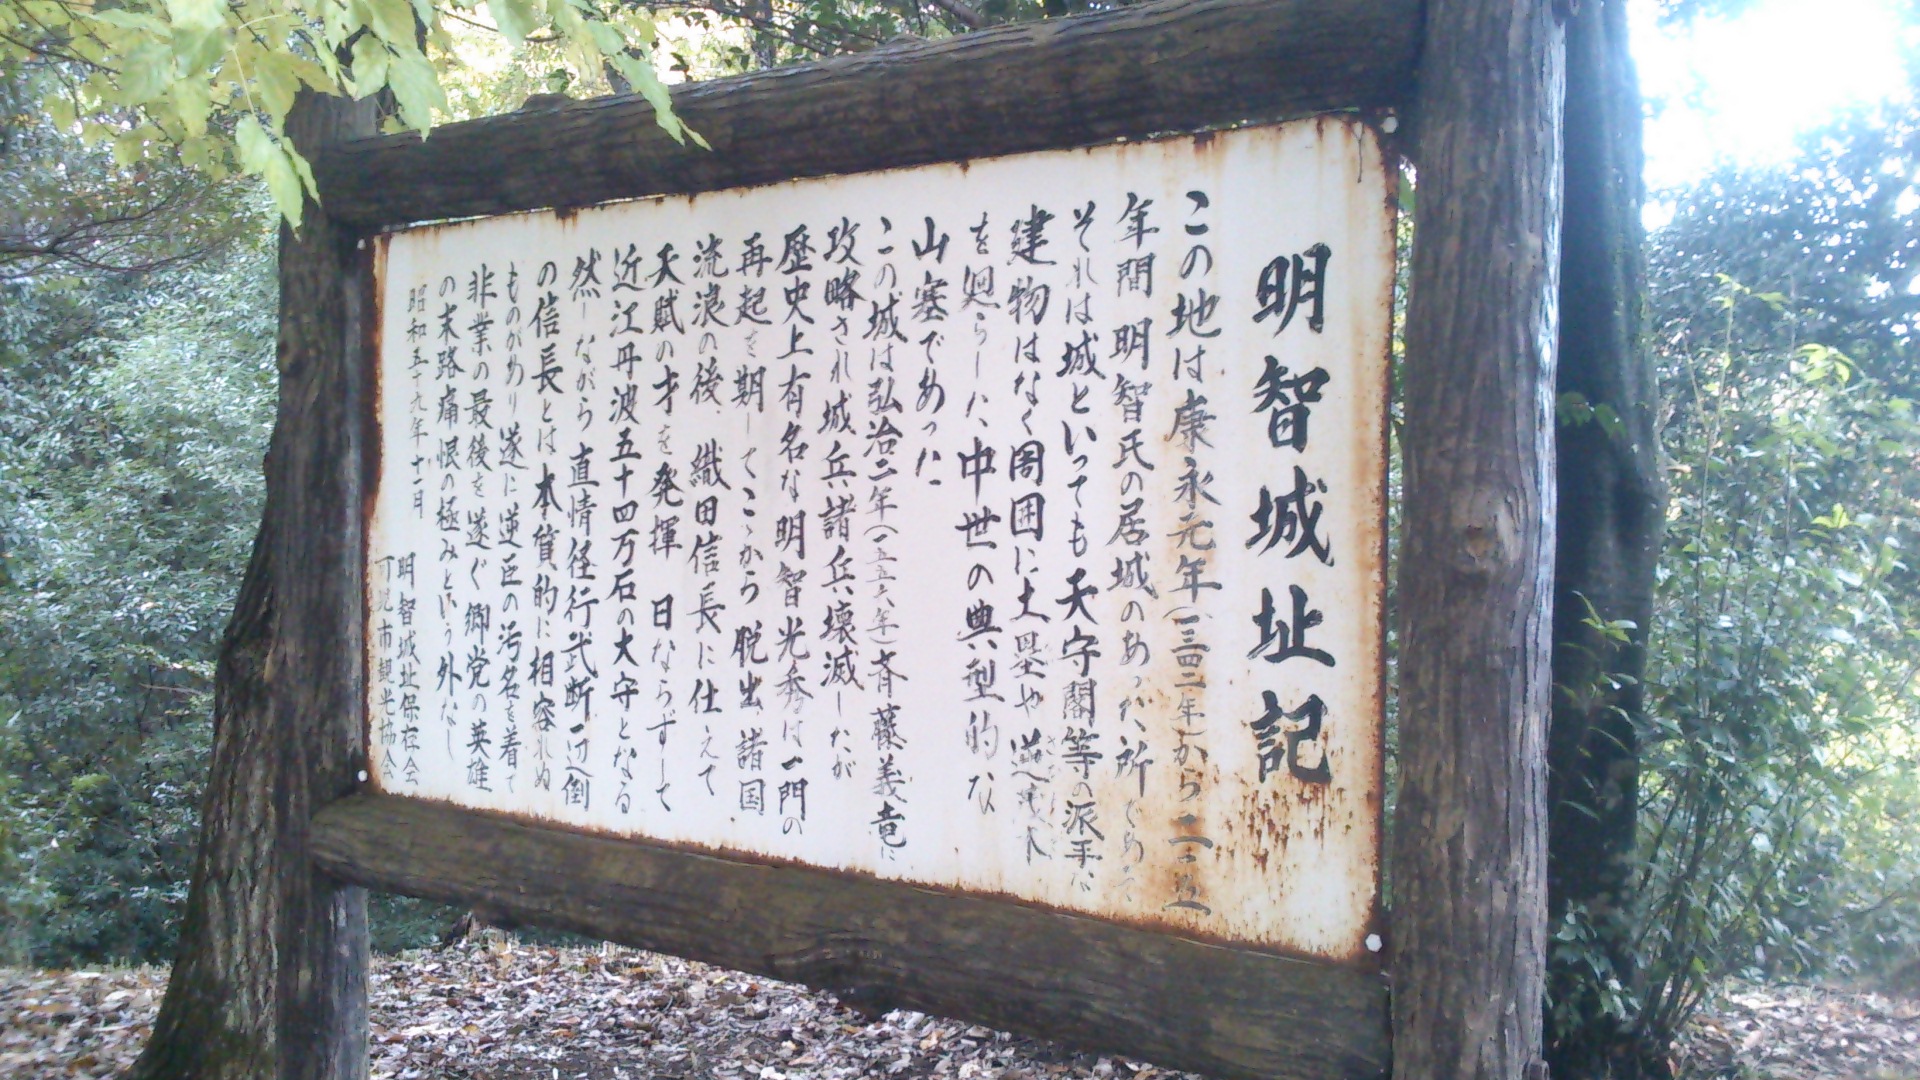 明智城址記
この地は康永元年(一三四二年)から二一五
年間 明智氏の居城のあった所であって
それは城といっても天守閣等の派手な
建物はなく周囲に土塁や逆茂木
を廻らした、中世の典型的な
山塞であった
この城は弘治二年(一五五六年)斉藤義竜に
攻略され城兵諸兵壊滅したが
歴史上有名な明智光秀は一門の
再起を期してこゝから脱出、諸国
流浪の後、織田信長に仕えて
天賦の才を発揮 日ならずして
近江丹波五十四万石の大守となる
然しながら直情径行武断一辺倒
の信長とは本質的に相容れぬ
ものがあり遂に逆臣の汚名を着て
非業の最後を遂ぐ郷党の英雄
の末路痛恨の極みという外なし
昭和五十九年十一月
明智城址保存会
可児市観光協会